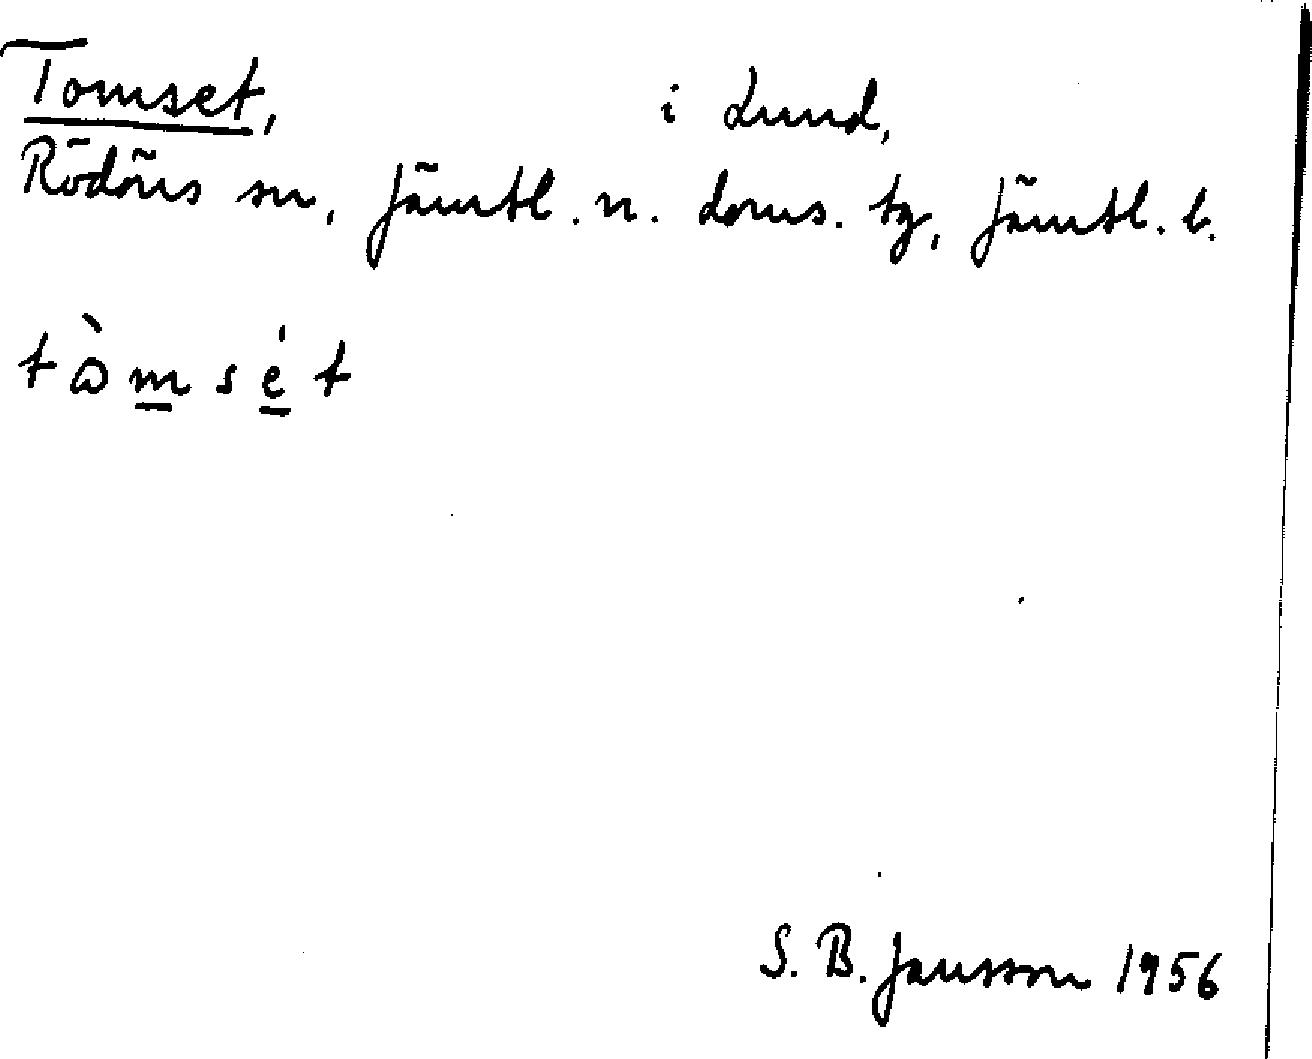 Tomset, i Lund,
Rödöns sn, Jämtl. n. doms. tg, Jämtl. l.
tɷ̀m̲sė̲t
S. B. Jansson 1956